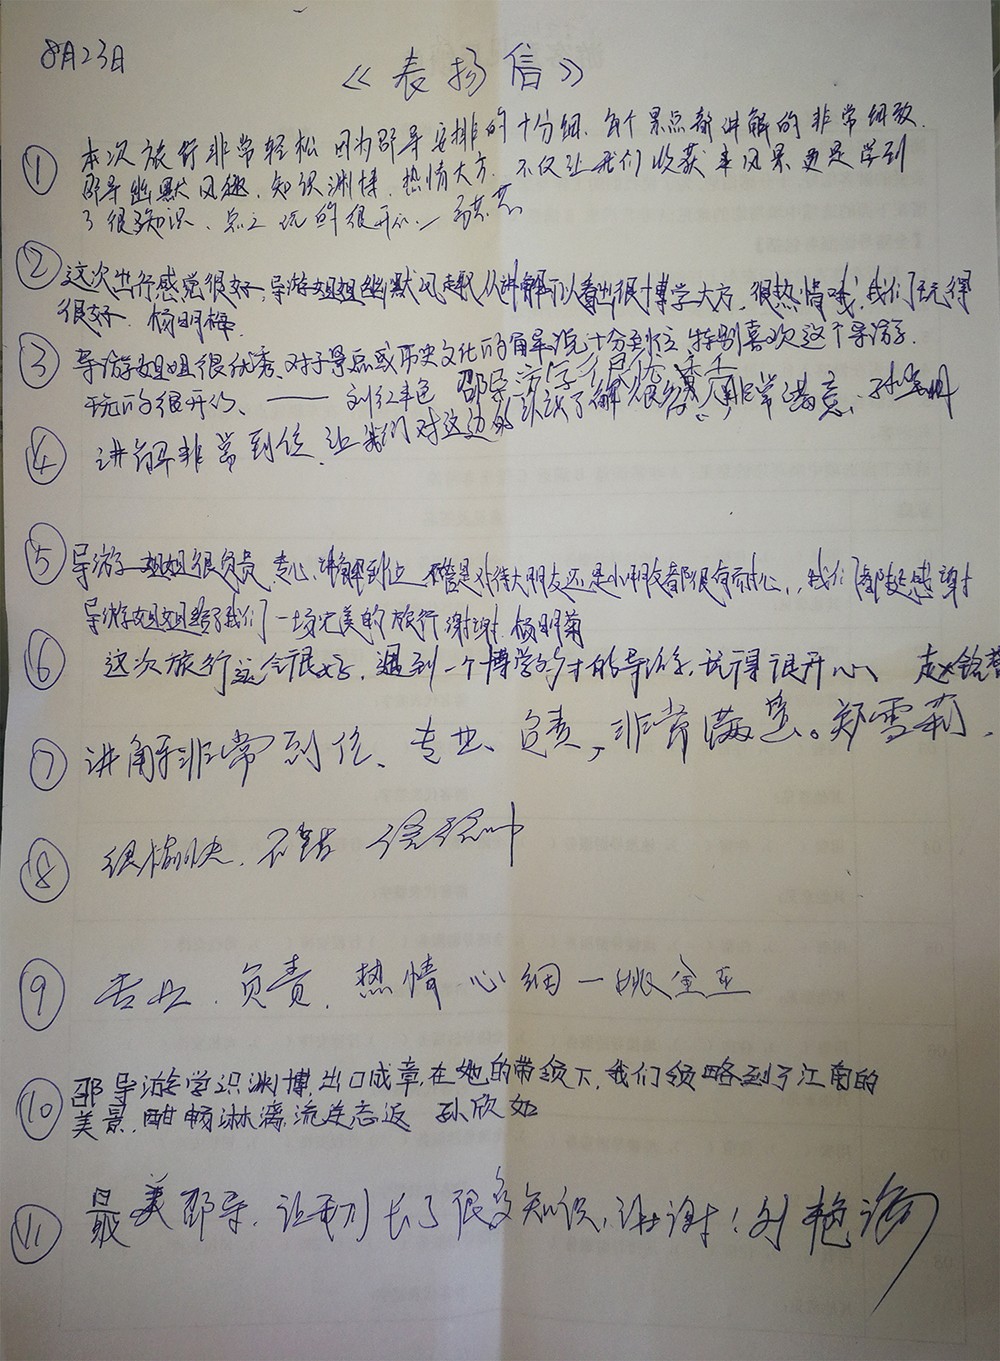 8月23日
《表扬信》
① 本次旅行非常轻松 因为邵导安排的十分细、每个景点都讲解的非常细致.
邵导幽默风趣、知识渊博、热情大方. 不仅让我们收获来风景更是学到
了很多知识、总之玩的很开心—
② 这次出行感觉很好,导游姐姐幽默风趣从讲解可以看出很博学大方,很热情哦,我们玩得
很好. 杨明梅.
③ 导游姐姐很优秀、对于景点或历史文化的解说十分到位 特别喜欢这个导游.
玩的很开心、—— 刘红 邵导
④ 讲解非常到位、让我们对这边的 了解很多 非常满意、孙
⑤ 导游姐姐很负责、专心、讲解到位 不管是对待大朋友还是小朋友都很有耐心,,我们都挺感谢
导游姐姐给了我们一场完美的旅行 谢谢. 杨明菊
⑥ 这次旅行 很好、遇到一个博学多才的导游、玩得很开心、 赵
⑦ 讲解非常到位、专业、负责,非常满意。郑雪莉.
⑧ 很愉快、不错 徐
⑨ 专业、负责、热情 心细 一姚金亚
⑩ 邵导游学识渊博,出口成章,在她的带领下,我们领略到了江南的
美景,酣畅淋漓,流连忘返 孙欣如
⑪ 最美邵导、让我们长了很多知识、谢谢!刘艳